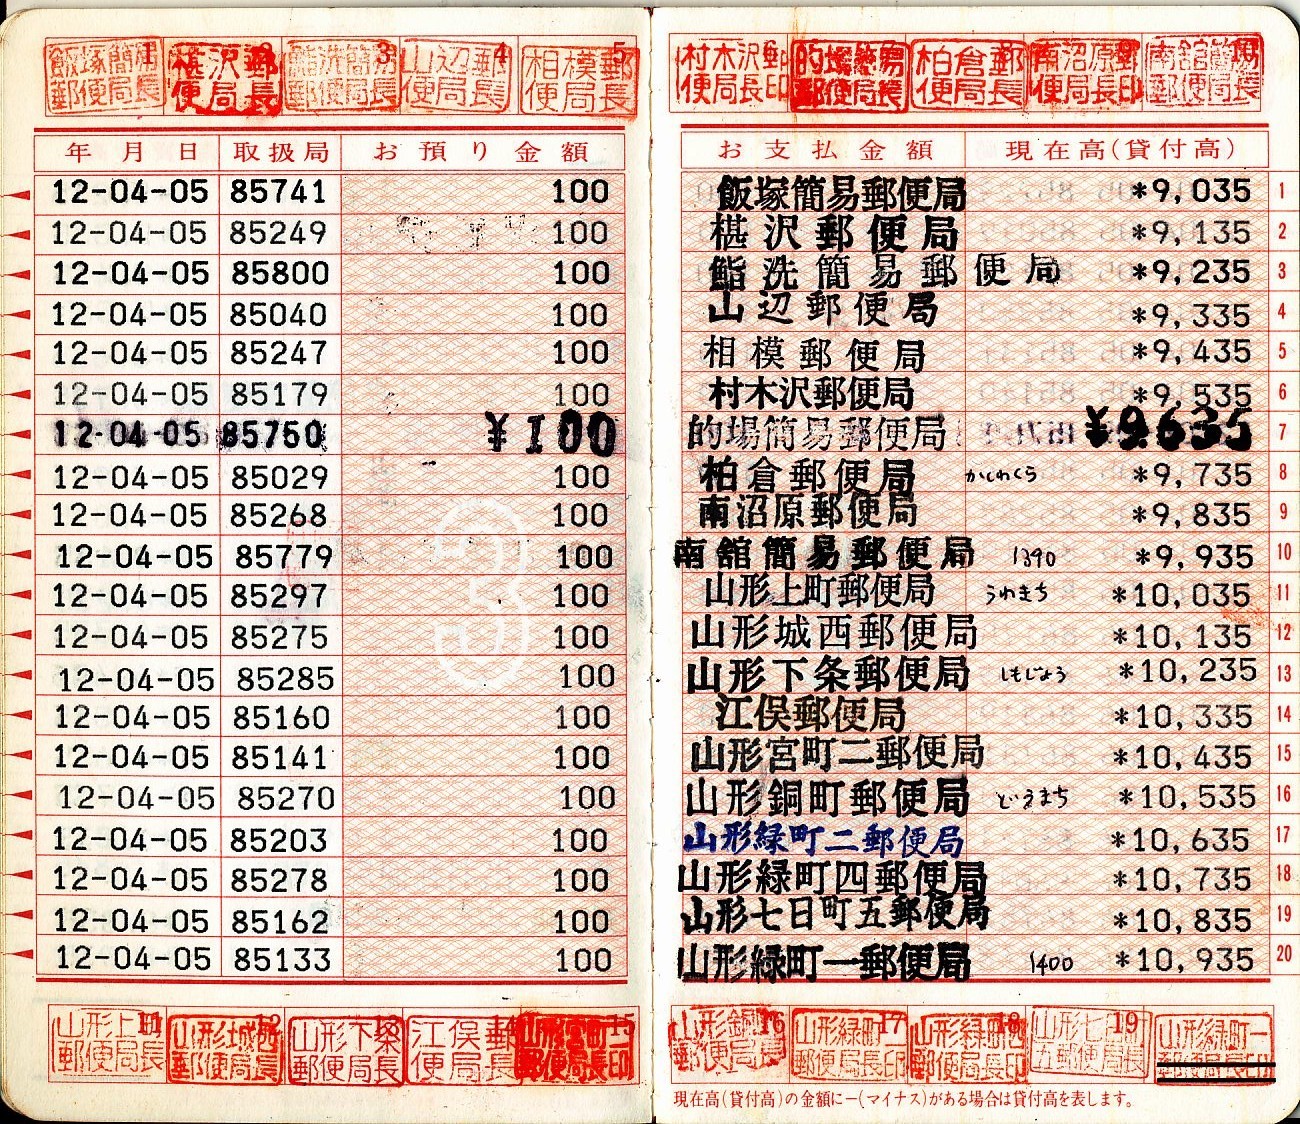 飯塚簡易郵便局長 1
椹沢郵便局長 2
鮨洗簡易郵便局長 3
山辺郵便局長 4
相模郵便局長 5
村木沢郵便局長印 6
的場簡易郵便局長
柏倉郵便局長
南沼原郵便局長印 9
南舘簡易郵便局長 10
年月日 取扱局 お預り金額 お支払金額 現在高(貸付高)
12-04-05 85741 100 飯塚簡易郵便局 *9,035 1
12-04-05 85249 100 椹沢郵便局 *9,135 2
12-04-05 85800 100 鮨洗簡易郵便局 *9,235 3
12-04-05 85040 100 山辺郵便局 *9,335 4
12-04-05 85247 100 相模郵便局 *9,435 5
12-04-05 85179 100 村木沢郵便局 *9,535 6
12-04-05 85750 ¥100 的場簡易郵便局 ¥9,635 7
12-04-05 85029 100 柏倉郵便局 かしわくら *9,735 8
12-04-05 85268 100 南沼原郵便局 *9,835 9
12-04-05 85779 100 南舘簡易郵便局 1390 *9,935 10
12-04-05 85297 100 山形上町郵便局 うわまち *10,035 11
12-04-05 85275 100 山形城西郵便局 *10,135 12
12-04-05 85285 100 山形下条郵便局 しもじょう *10,235 13
12-04-05 85160 100 江俣郵便局 *10,335 14
12-04-05 85141 100 山形宮町二郵便局 *10,435 15
12-04-05 85270 100 山形銅町郵便局 どうまち *10,535 16
12-04-05 85203 100 山形緑町二郵便局 *10,635 17
12-04-05 85278 100 山形緑町四郵便局 *10,735 18
12-04-05 85162 100 山形七日町五郵便局 *10,835 19
12-04-05 85133 100 山形緑町一郵便局 1400 *10,935 20
3
山形上町郵便局長 11
山形城西郵便局長 12
山形下条郵便局長 13
江俣郵便局長 14
山形宮町二 15
山形銅町郵便局長 16
山形緑町二郵便局長印 17
山形緑町四郵便局長印 18
19
山形緑町一郵便局長印
現在高(貸付高)の金額に−(マイナス)がある場合は貸付高を表します。